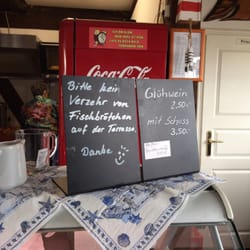 Coca-Cola
Bitte kein
Verzehr von
Fischbrötchen
auf der Terrasse.
Danke
Glühwein
2,50
mit Schuss
3,50